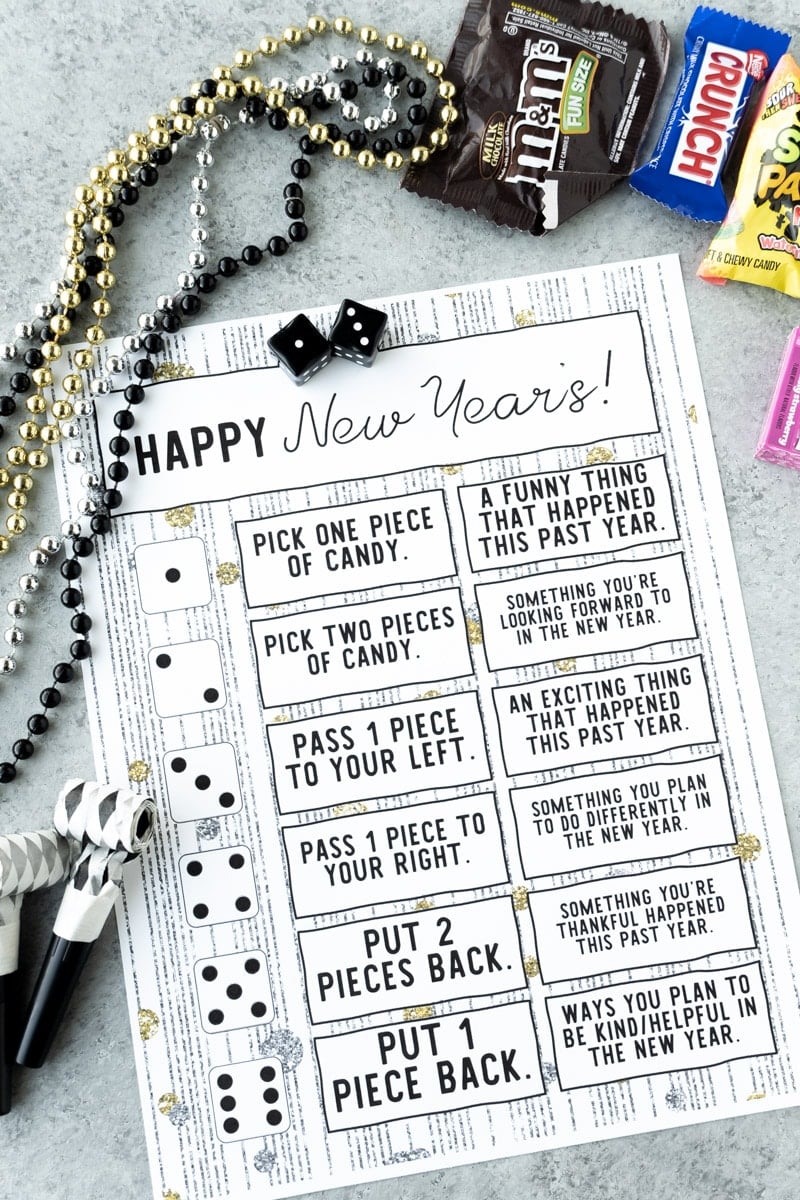 m&m's
MILK
CHOCOLATE
FUN SIZE
CRUNCH
Nestle
SOUR
PA
FT & CHEWY CANDY
strawberry
HAPPY New Year's!
PICK ONE PIECE
OF CANDY.
A FUNNY THING
THAT HAPPENED
THIS PAST YEAR.
PICK TWO PIECES
OF CANDY.
SOMETHING YOU'RE
LOOKING FORWARD TO
IN THE NEW YEAR.
PASS 1 PIECE
TO YOUR LEFT.
AN EXCITING THING
THAT HAPPENED
THIS PAST YEAR.
PASS 1 PIECE TO
YOUR RIGHT.
SOMETHING YOU PLAN
TO DO DIFFERENTLY IN
THE NEW YEAR.
PUT 2
PIECES BACK.
SOMETHING YOU'RE
THANKFUL HAPPENED
THIS PAST YEAR.
PUT 1
PIECE BACK.
WAYS YOU PLAN TO
BE KIND/HELPFUL IN
THE NEW YEAR.